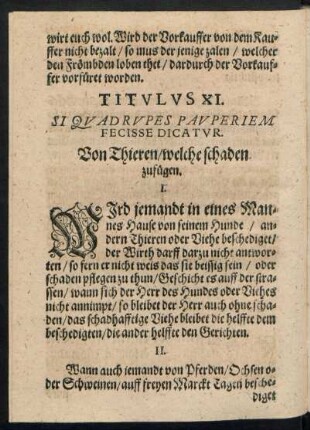 wirt euch wol. Wird der Vorkauffer von dem Kau-
ffer nicht bezalt / so mus der jenige zalen / welcher
den Frömbden loben thet / dardurch der Vorkauf-
fer vorfüret worden.
TITVLVS XI.
SI QVADRVPES PAVPERIEM
FECISSE DICATVR.
Von Thieren / welche schaden
zufügen.
I.
WIrd jemandt in eines Man-
nes Hause von seinem Hunde / an-
dern Thieren oder Viehe beschediget /
der Wirth darff darzu nicht antwor-
ten / so fern er nicht weis das sie beissig sein / oder
schaden pflegen zu thun / Geschicht es auff der stras-
sen / wann sich der Herr des Hundes oder Viehes
nicht annimpt / so bleibet der Herr auch ohne scha-
den / das schadhafftige Viehe bleibet die helffte dem
beschedigten / die ander helffte den Gerichten.
II.
Wann auch jemandt von Pferden / Ochsen o-
der Schweinen / auff freyen Marckt Tagen besche-
diget